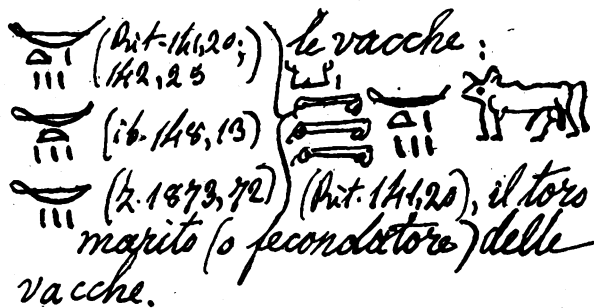 (Rit. 141,20; le vacche;
142,25
(ib. 148,13)
(Z. 1873,72) (Rit. 141,20), il toro
marito (o fecondatore) delle
vacche.